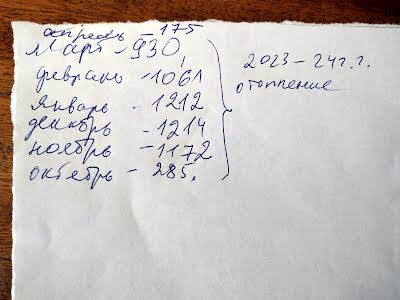 апрель - 175
март - 930
февраль - 1061
январь - 1212
декабрь - 1214
ноябрь - 1172
октябрь - 285.
2023 - 24 г.г.
отопление